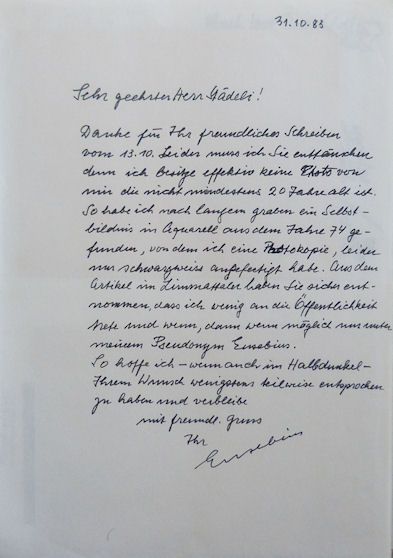 31.10.83
Sehr geehrter Herr Städeli!
Danke für Ihr freundliches Schreiben
vom 13.10. Leider muss ich Sie enttäuschen
denn ich besitze effektiv keine Photo von
mir die nicht mindestens 20 Jahre alt ist.
So hab ich nach langem graben ein Selbst-
bildnis in Aquarell aus dem Jahre 74 ge-
funden, von dem ich eine Photokopie, leider
nur schwarzweiss angefertigt habe. Aus dem
Artikel im Limmattaler haben Sie sicher ent-
nommen, dass ich wenig an die Öffentlichkeit
trete und wenn, dann wenn möglich nur unter
meinem Pseudonym Eusebius.
So hoffe ich – wenn auch im Halbdunkel –
Ihrem Wunsch wenigstens teilweise entsprochen
zu haben und verbleibe
mit freundl. Gruss
Ihr
Eusebius